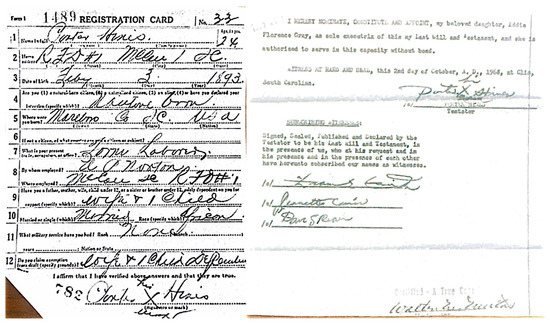 Form 1 1489 REGISTRATION CARD No. 33
1 Name in full Hinis Age in yrs. 24
2 R F D #1 McColl SC
3 Date of birth Feby 3 1893
4 Are you (1) a natural-born citizen, (2) a naturalized citizen, (3) an alien, (4) or have you declared your
intention (specify which)? Natural Born
5 Where were you born? Marlboro Co SC USA
6 If not a citizen, of what country are you a citizen or subject?
7 What is your present trade, occupation, or office? Farm Laborer
8 By whom employed? Norton
Where employed? McColl RFD #1
9 Have you a father, mother, wife, child under 12, or a sister or brother under 12, solely dependent on you for
support (specify which)? Wife & 1 Child
10 Married or single (which)? Married Race (specify which)? African
11 What military service have you had? Rank None
years Nation or State
12 Do you claim exemption from draft (specify grounds)? Wife & 1 Child Dependent
I affirm that I have verified above answers and that they are true.
782 his X Hinis
(Signature or mark)
mark
I HEREBY NOMINATE, CONSTITUTE AND APPOINT, my beloved daughter, Addie
Florence Gray, as sole executrix of this my last Will and Testament, and she is
authorized to serve in this capacity without bond.
WITNESS MY HAND AND SEAL, this 2nd day of October, A. D., 1968, at Clio,
South Carolina.
his
X Hines
Testator
SUBSCRIBING WITNESSES:
Signed, Sealed, Published and Declared by the
Testator to be his Last Will and Testament, in
the presence of us, who at his request and in
his presence and in the presence of each other
have hereunto subscribed our names as witnesses.
/s/
/s/ Jeanette Cain
/s/
Certified - A True Copy